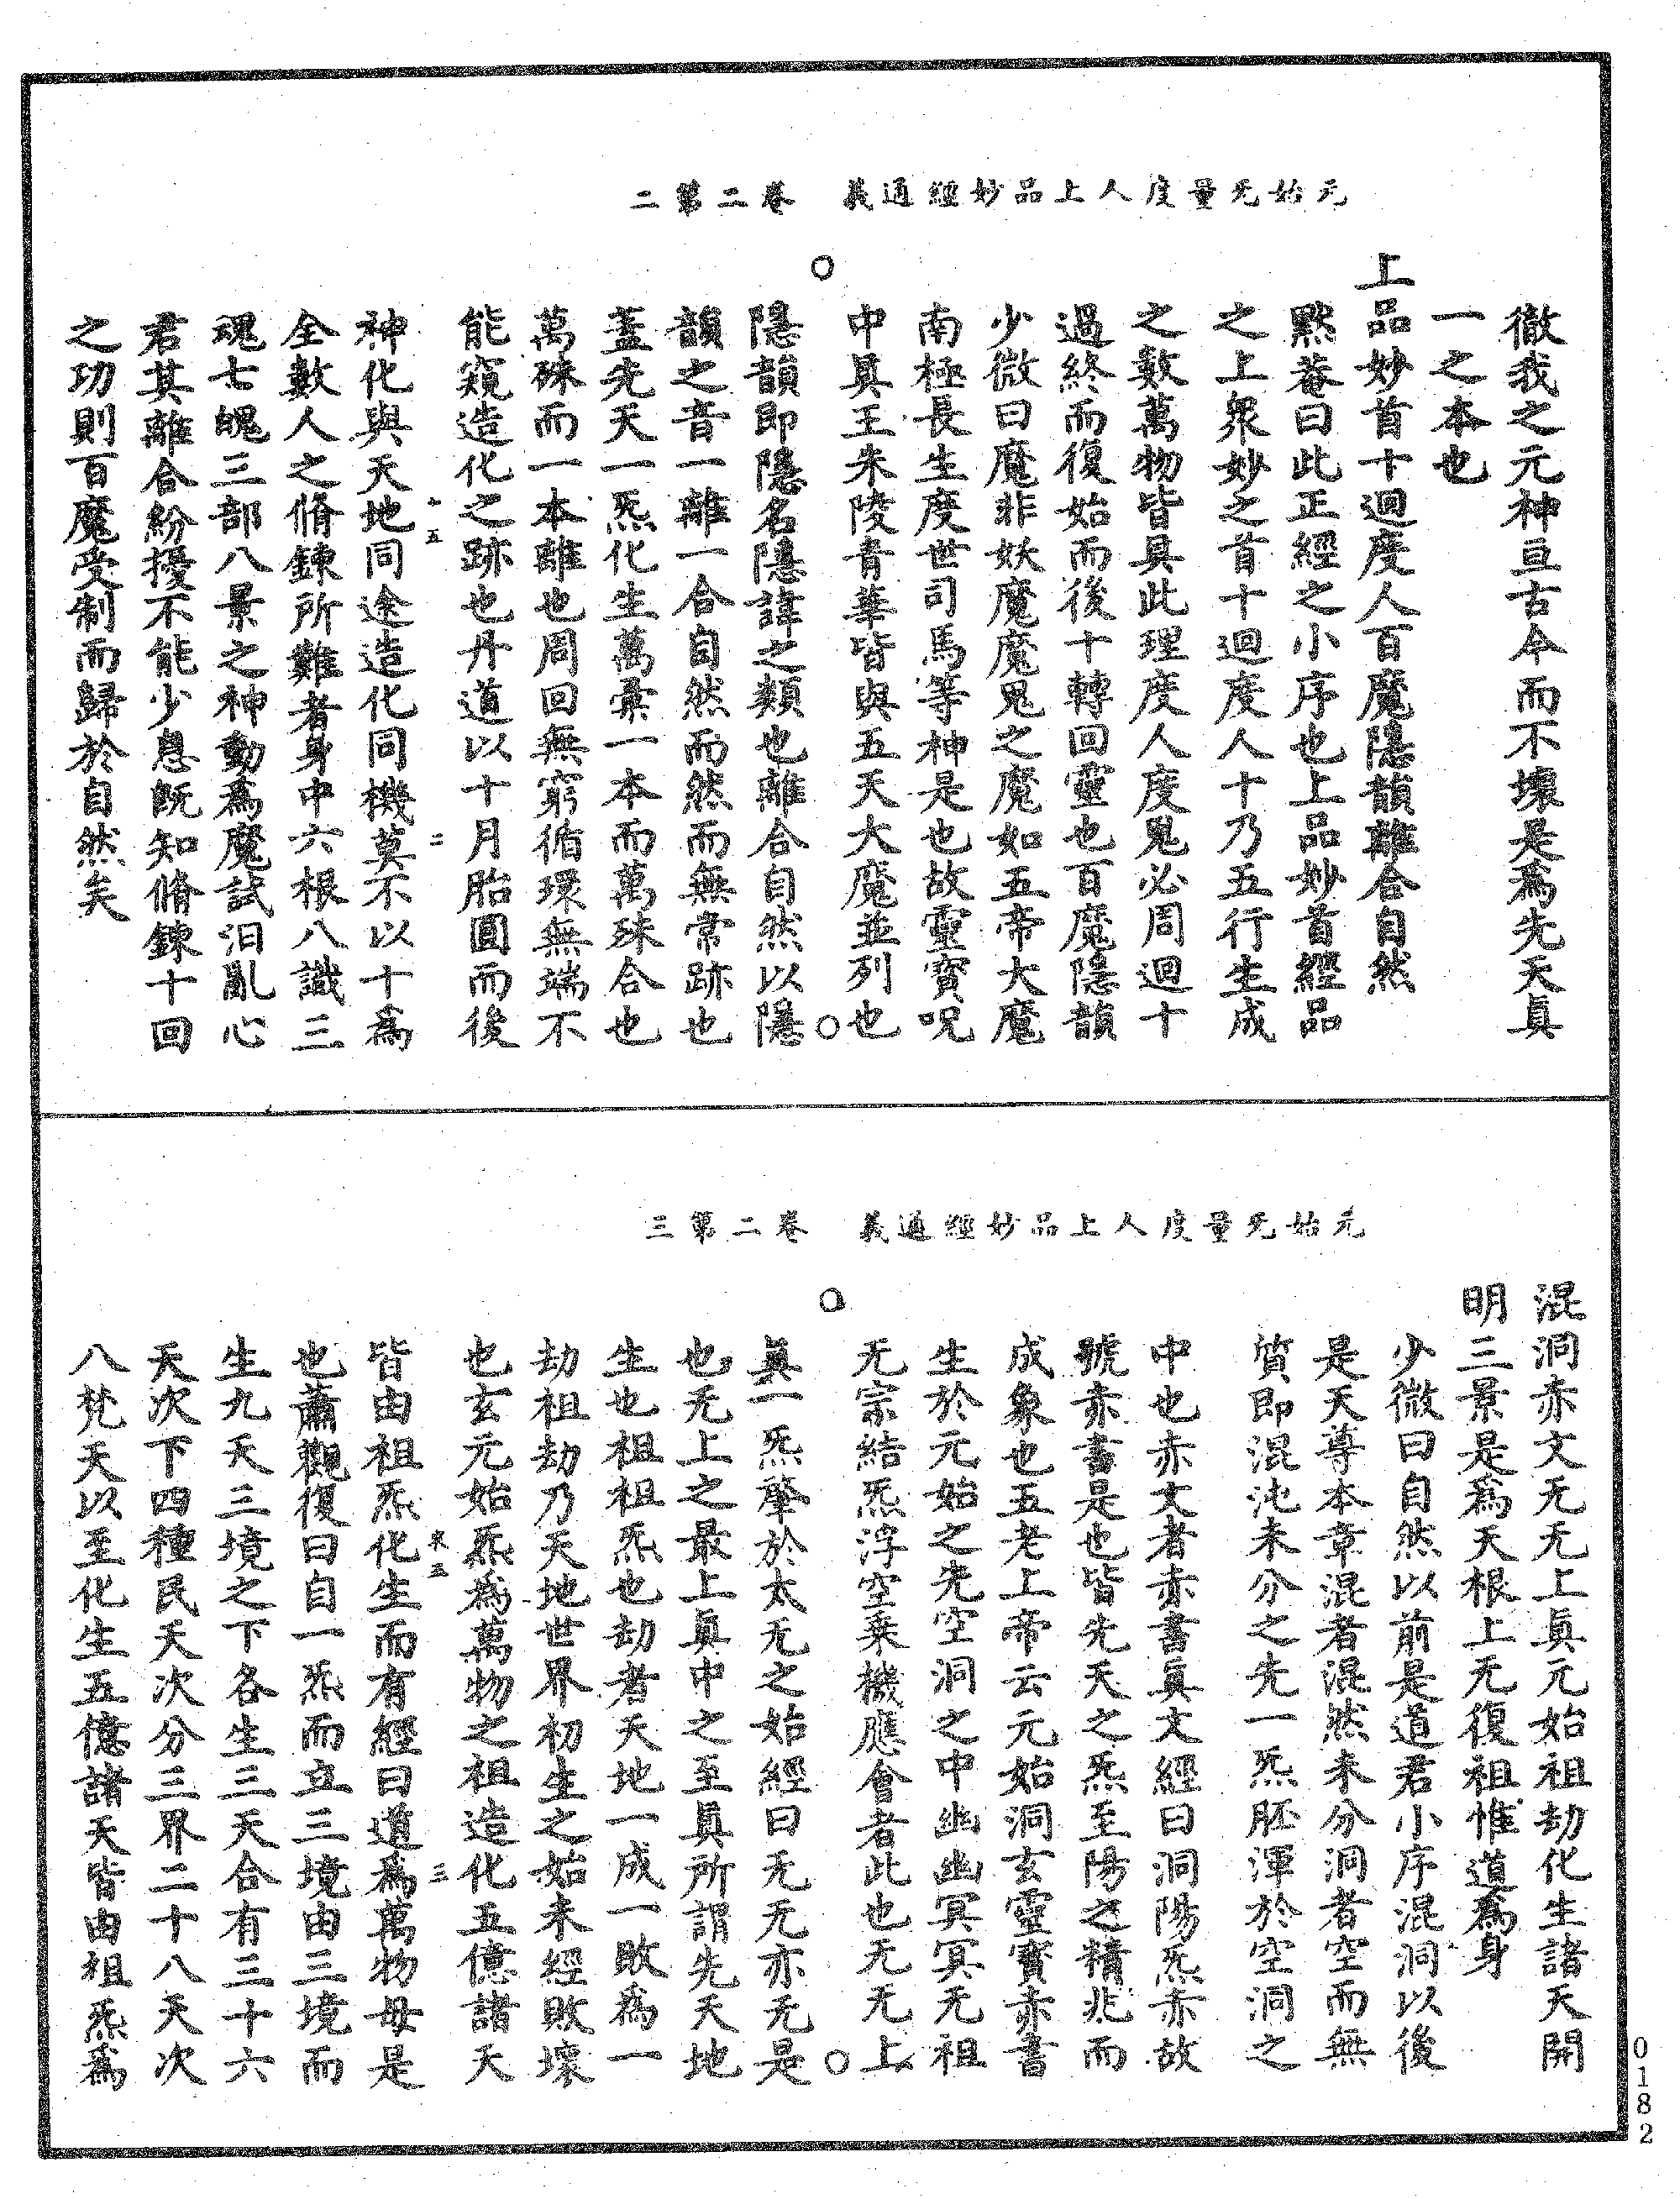 元始无量度人上品妙經通義　卷二第二
徹我之元神亘古今而不壞是爲先天眞
一之本也
上品妙首十迴度人百魔隱韻離合自然
黙菴曰此正經之小序也上品妙首經品
之上衆妙之首十迴度人十乃五行生成
之數萬物皆具此理度人度鬼必周迴十
過終而復始而後十轉回靈也百魔隱韻
少微曰魔非妖魔魔鬼之魔如五帝大魔
南極長生度世司馬等神是也故靈寳呪
中具王朱陵青華皆與五天大魔並列也
隱韻即隱名隱諱之類也離合自然以隱
韻之音一離一合自然而然而無常跡也
葢先天一炁化生萬彙一本而萬殊合也
萬殊而一本離也周回無窮循環無端不
能窺造化之跡也丹道以十月胎圓而後
神化與天地同途造化同機莫不以十爲
全數人之脩錬所難者身中六根八識三
魂七魄三部八景之神動爲魔試汩亂心
君其離合紛擾不能少息旣知脩錬十回
之功則百魔受制而歸於自然矣
十五
二
元始无量度人上品妙經通義　卷二第三
混洞赤文无无上眞元始祖劫化生諸天開
明三景是爲天根上无復祖惟道爲身
少微曰自然以前是道君小序混洞以後
是天尊本章混者混然未分洞者空而無
質即混沌未分之先一炁胚渾於空洞之
中也赤文者赤書眞文經曰洞陽炁赤故
號赤書是也皆先天之炁至陽之精兆而
成象也五老上帝云元始洞玄靈寳赤書
生於元始之先空洞之中幽幽冥冥无祖
无宗結炁浮空乗機應會者此也无无上
眞一炁肇於太无之始經曰无无亦无是
也无上之最上眞中之至眞所謂先天地
生也祖祖炁也劫者天地一成一敗爲一
劫祖劫乃天地世界初生之始未經敗壞
也玄元始炁爲萬物之祖造化五億諸天
皆由祖炁化生而有經曰道爲萬物母是
也蕭觀復曰自一炁而立三境由三境而
生九天三境之下各生三天合有三十六
天次下四種民天次分三界二十八天次
八梵天以至化生五億諸天皆由祖炁爲
三
0182